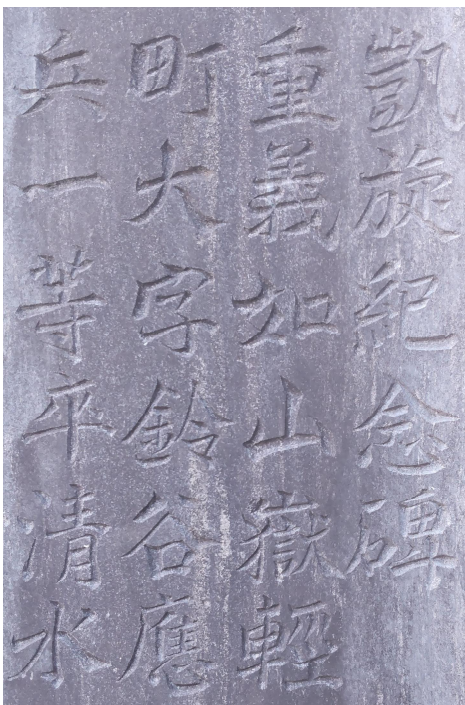 凱旋紀念碑
重義如山嶽輕
町大字鈴谷應
兵一等卒清水